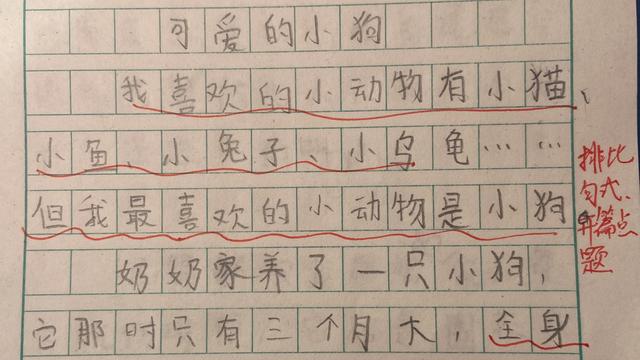 可爱的小狗
我喜欢的小动物有小猫、
小鱼、小兔子、小乌龟……
但我最喜欢的小动物是小狗
奶奶家养了一只小狗，
它那时只有三个月大，全身
排比
句式、
开篇点
题